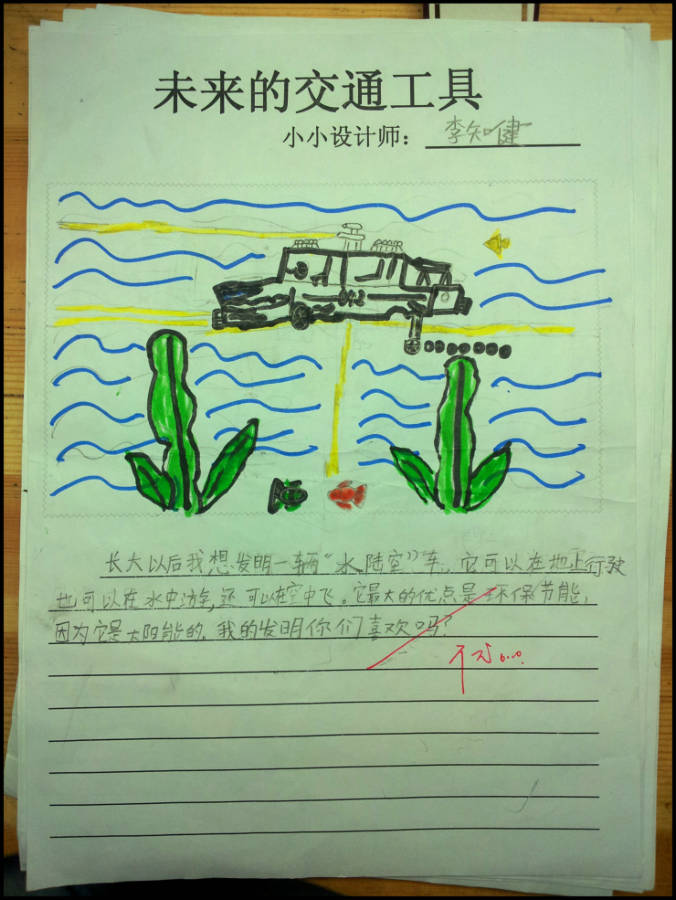 未来的交通工具
小小设计师：李知健
长大以后我想发明一辆“水陆空”车，它可以在地上行驶
也可以在水中游，还可以在空中飞。它最大的优点是环保节能，
因为它是太阳能的。我的发明你们喜欢吗？